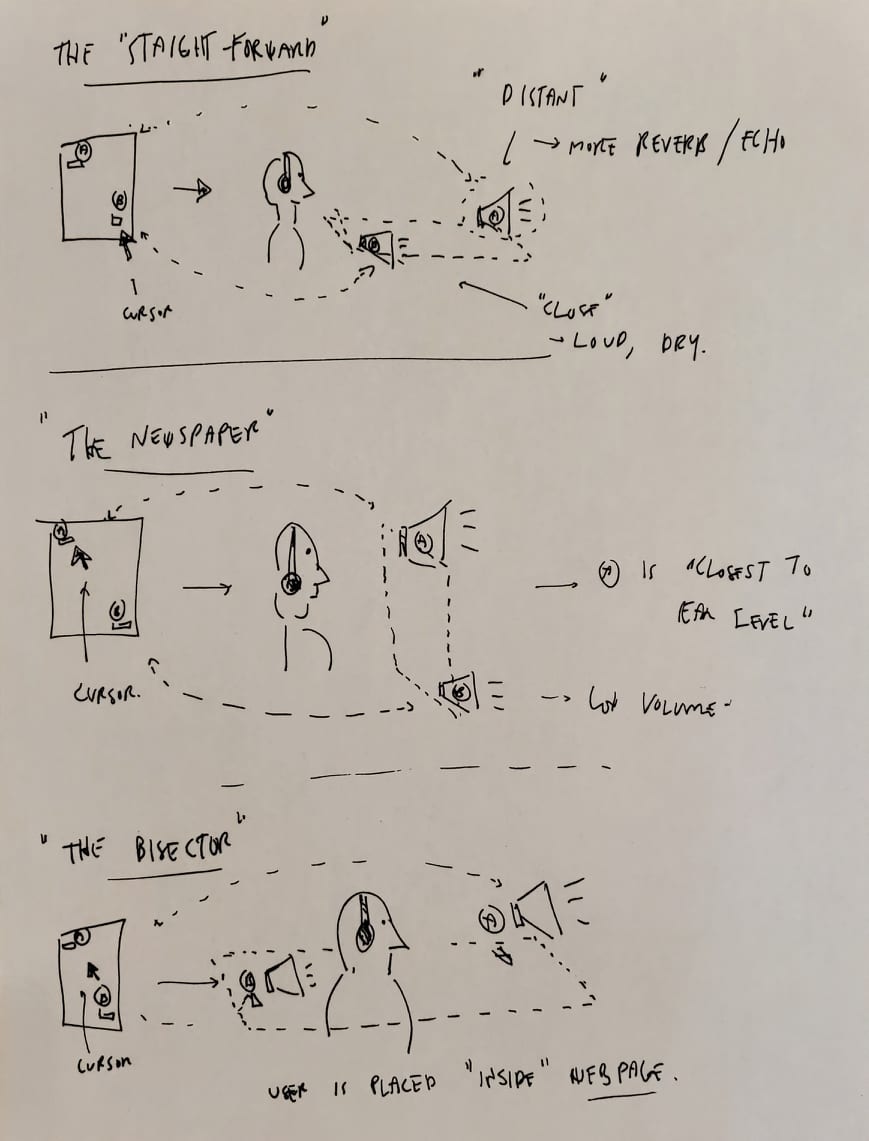 THE "STAIGHT-FORWARD"
"DISTANT"
→ MORE REVERB/ECHO
A
B
A
B
CURSOR
"CLOSE"
→ LOUD, DRY.
"THE NEWSPAPER"
A
A
B
→ A IS "CLOSEST TO
EAR LEVEL"
CURSOR.
B
→ LOW VOLUME-
"THE BISECTOR"
A
A
B
B
CURSOR
USER IS PLACED "INSIDE" WEBPAGE.